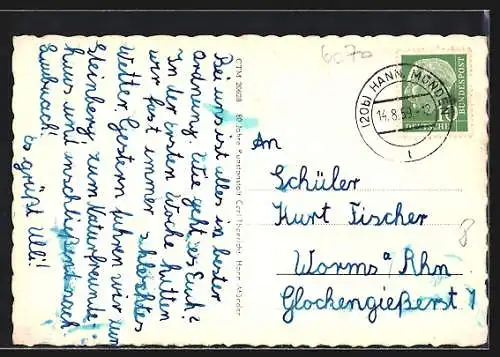 Bei uns ist alles in bester
Ordnung. Wie geht es Euch?
In der ersten Woche hatten
wir fast immer schlechtes
Wetter. Gestern fuhren wir zum
Steinberg zum Naturfreunde-
haus und anschließent nach
Laubach!
Es grüßt Ulli!
CTM 20628 Carl Thoericht, Hann. Münden
6070
(20b) HANN. MÜNDEN
14.8.59
1
DEUTSCHE
BUNDESPOST
10
An
Schüler
Kurt Fischer
Worms a/Rhn
Glockengießerst 1
8